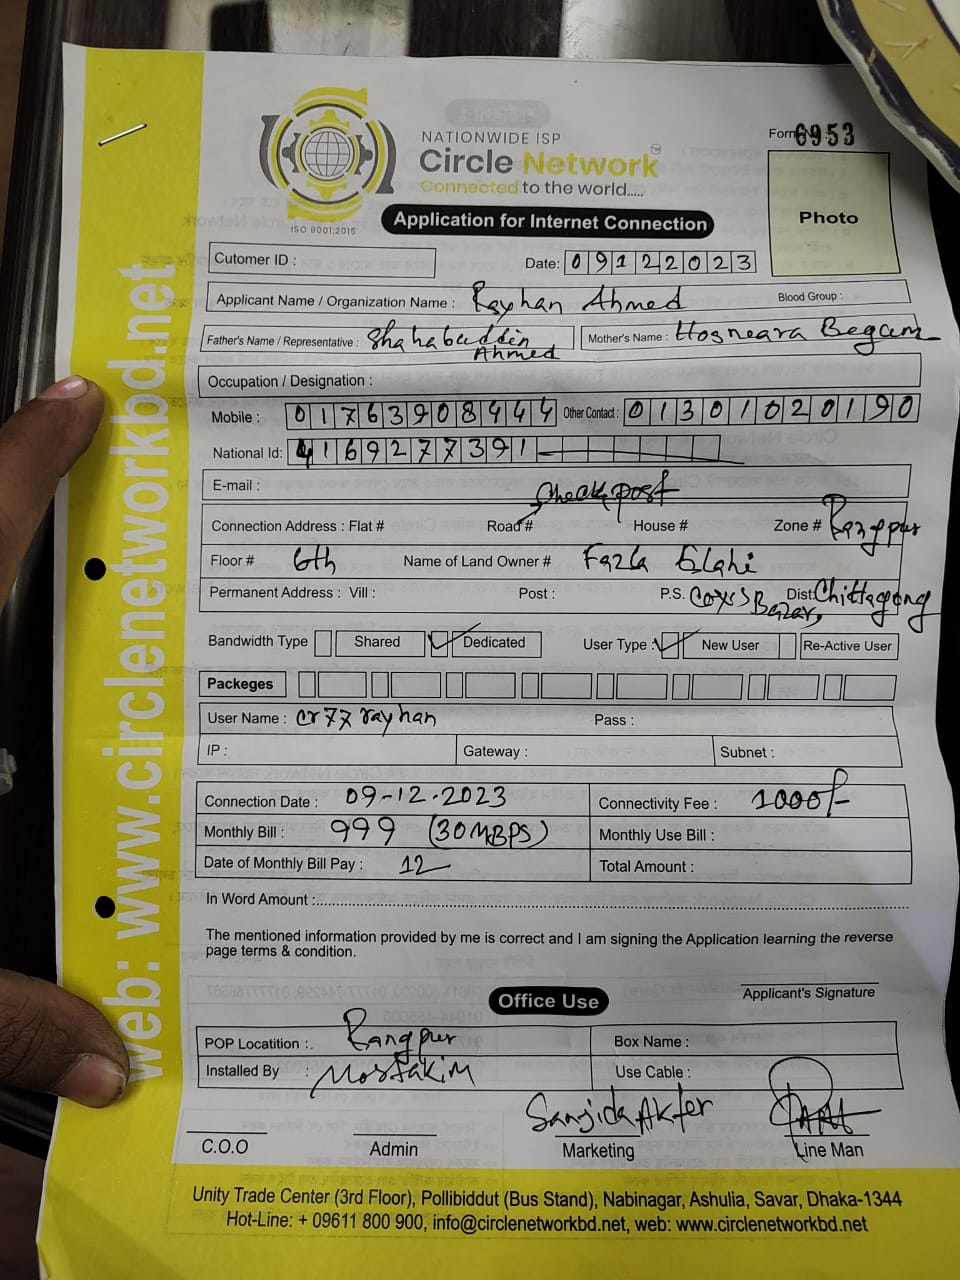 NATIONWIDE ISP
Circle Network TM
Connected to the world.....
ISO 9001:2015
Form No 6953
Photo
Application for Internet Connection
Cutomer ID :
Date: 09122023
Applicant Name / Organization Name : Rayhan Ahmed Blood Group :
Father's Name / Representative : Shahabuddin Ahmed Mother's Name : Hosneara Begam
Occupation / Designation :
Mobile : 01763908444 Other Contact : 01301020190
National Id: 4169277391
E-mail :
Connection Address : Flat # Road # Check post House # Zone # Rangpur
Floor # 6th Name of Land Owner # Fazla Elahi
Permanent Address : Vill : Post : P.S. Cox's Bazar, Dist: Chittagong
Bandwidth Type Shared Dedicated User Type : New User Re-Active User
Packeges
User Name : cr77rayhan Pass :
IP : Gateway : Subnet :
Connection Date : 09-12-2023 Connectivity Fee : 1000/-
Monthly Bill : 999 (30MBPS) Monthly Use Bill :
Date of Monthly Bill Pay : 12 Total Amount :
In Word Amount :
The mentioned information provided by me is correct and I am signing the Application learning the reverse
page terms & condition.
Applicant's Signature
Office Use
POP Locatition : Rangpur Box Name :
Installed By : Mostakim Use Cable :
Sanjida Akter
C.O.O Admin Marketing Line Man
Unity Trade Center (3rd Floor), Pollibiddut (Bus Stand), Nabinagar, Ashulia, Savar, Dhaka-1344
Hot-Line: + 09611 800 900, info@circlenetworkbd.net, web: www.circlenetworkbd.net
web: www.circlenetworkbd.net